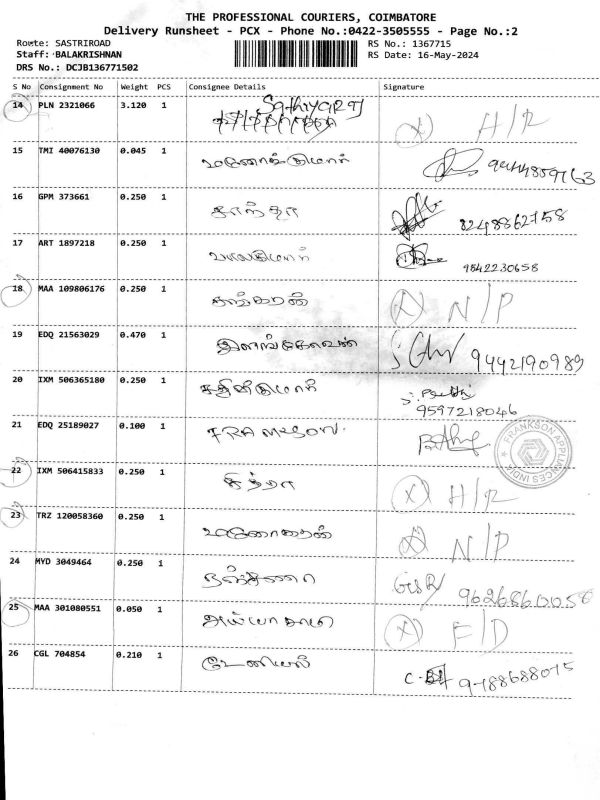 THE PROFESSIONAL COURIERS, COIMBATORE
Delivery Runsheet - PCX - Phone No.:0422-3505555 - Page No.:2
Route: SASTRIROAD
RS No.: 1367715
Staff: BALAKRISHNAN
RS Date: 16-May-2024
DRS No.: DCJB136771502
S No Consignment No Weight PCS Consignee Details Signature
14 PLN 2321066 3.120 1 Sathiyaraj (X) H/R
15 TMI 40076130 0.045 1 மனோஜ்குமார் 9444859763
16 GPM 373661 0.250 1 காந்தா 8248862758
17 ART 1897218 0.250 1 9842230658
18 MAA 109806176 0.250 1 சங்கரன் (X) N/P
19 EDQ 21563029 0.470 1 இளங்கோவன் 9442190989
20 IXM 506365180 0.250 1 சதீஸ்குமார் 9597218046
21 EDQ 25189027 0.100 1 FRANKSON
FRANKSON APPLIANCES INDIA
22 IXM 506415833 0.250 1 சித்ரா (X) H/R
23 TRZ 120058360 0.250 1 (X) N/P
24 MYD 3049464 0.250 1 9626860058
25 MAA 301080551 0.050 1 அய்யாசாமி (X) F/D
26 CGL 704854 0.210 1 டேனியல் 9788688075